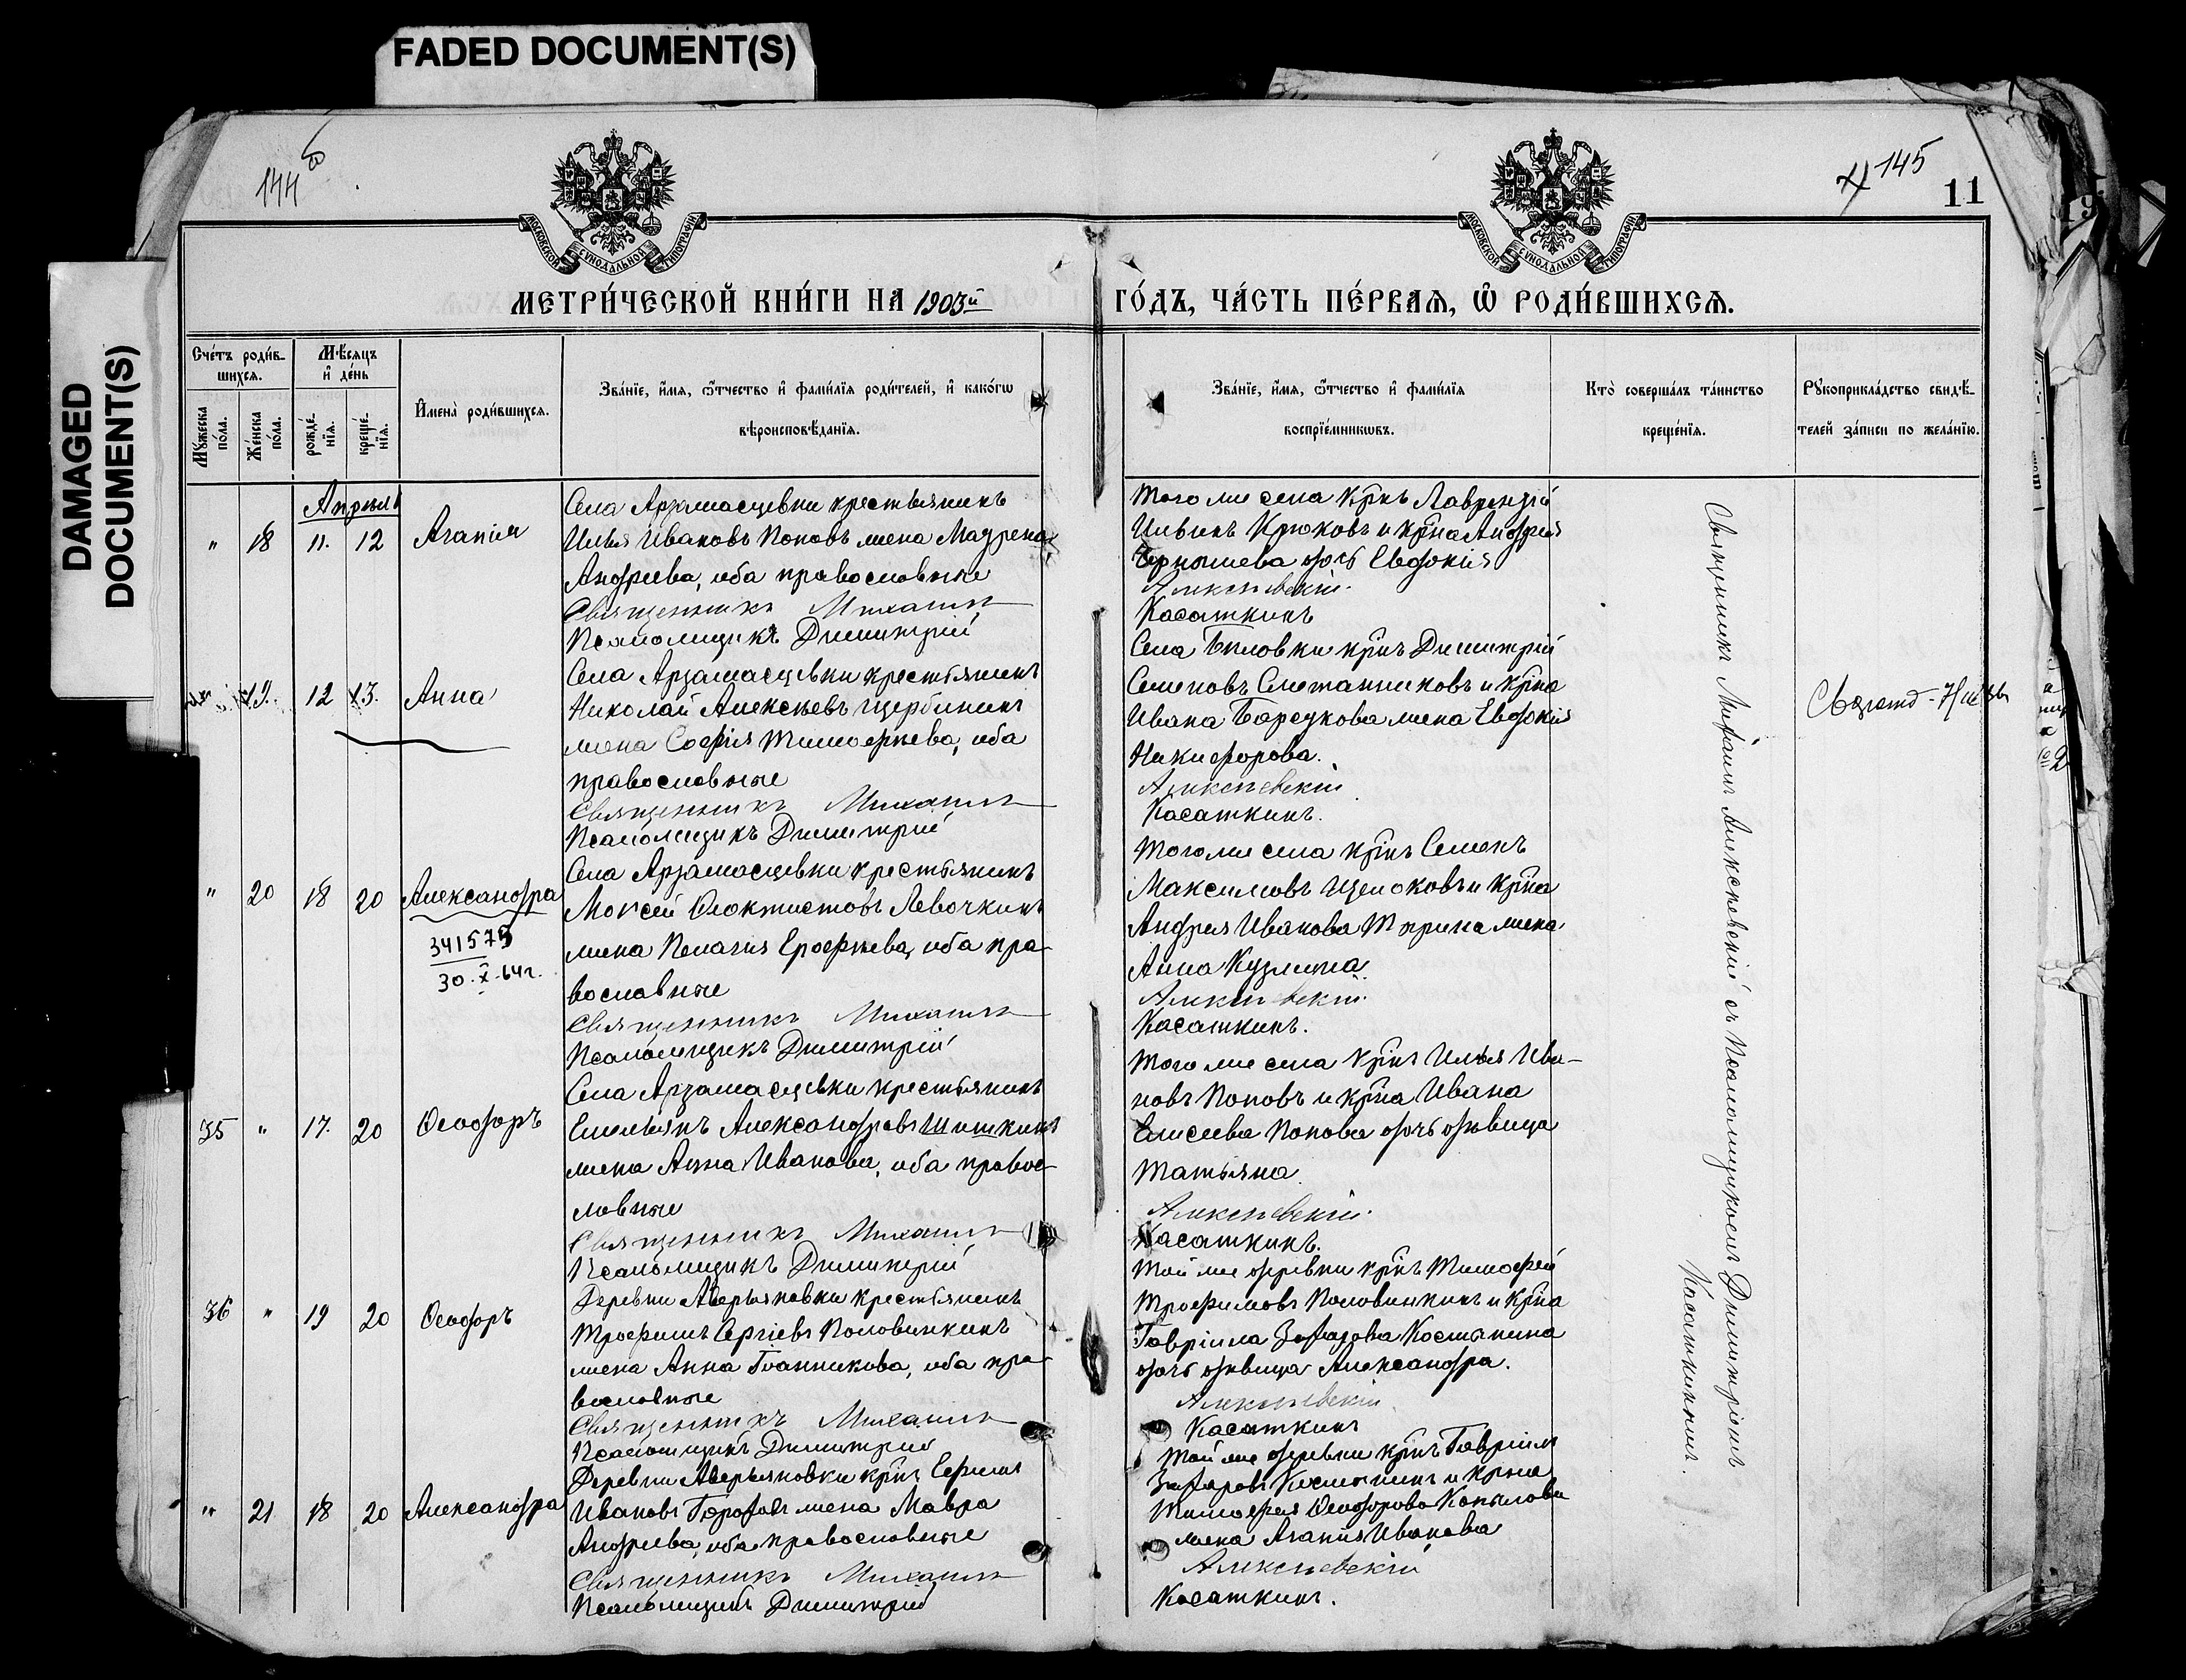 FADED DOCUMENT(S)
DAMAGED
DOCUMENT(S)
144 об
145
11
МОСКОВСКОЙ СУНОДАЛЬНОЙ ТИПОГРАФИИ
МОСКОВСКОЙ СУНОДАЛЬНОЙ ТИПОГРАФИИ
МЕТРИ́ЧЕСКОЙ КНИ́ГИ НА 1903й
ГО́ДЪ, ЧА́СТЬ ПЕ́РВАЯ, Ѡ҆ РОДИ́ВШИХСЯ.
Сче́тъ роди́в-
шихся.
Мꙋ́жеска
по́ла.
Же́нска
по́ла.
Мѣ́сяцъ
и҆ де́нь
рожде́-
нїя.
креще́-
нїя.
И҆мена̀ роди́вшихся.
Зва́нїе, и҆́мя, ѻ҆́тчество и҆ фами́лїя роди́телей, и҆ како́гѡ
вѣроисповѣ́данїя.
Зва́нїе, и҆́мя, ѻ҆́тчество и҆ фами́лїя
воспрїе́мникѡвъ.
Кто̀ соверша́лъ та́инство
креще́нїя.
Рꙋкоприкла́дство свидѣ́-
телей за́писи по жела́нїю.
Апрѣль
" 18 11. 12 Агапія
Села Арзамасцевки крестьянинъ
Илья Ивановъ Поповъ жена Мадрена
Андреева, оба православные
Священникъ Михаилъ
Псаломщикъ Димитрій
Того же села кр̃нъ Лаврентій
Ильинъ Крюковъ и кр̃на Андрея
Чернышева дочь Евдокія
Алексѣевскій.
Касаткинъ
19. 12 13. Анна
Села Арзамасцевки крестьянинъ
Николай Алексѣевъ Щербининъ
жена Софія Тимофѣева, оба
православные
Священникъ Михаилъ
Псаломщикъ Димитрій
Села Бѣловки кр̃нъ Димитрій
Семеновъ Сметанниковъ и кр̃на
Ивана Борсукова жена Евдокія
Никифорова.
Алексѣевскій
Касаткинъ.
" 20 18 20 Александра
341575
30.X.64г.
Села Арзамасцевки крестьянинъ
Моѵсей Ѳеоктистовъ Левочкинъ
жена Пелагія Ерофѣева, оба пра-
вославные
Священникъ Михаилъ
Псаломщикъ Димитрій
Того же села кр̃нъ Семенъ
Максимовъ Щелоковъ и кр̃на
Андрея Иванова жена
Анна Кузмина
Алексѣевскій.
Касаткинъ.
35 " 17. 20 Ѳеодоръ
Села Арзамасцевки крестьянинъ
Емельянъ Александровъ Шишкинъ
жена Анна Иванова, оба правос-
лавные
Священникъ Михаилъ
Псаломщикъ Димитрій
Того же села кр̃нъ Илья Ива-
новъ Поповъ и кр̃на Ивана
Елисеева Попова дочь дѣвица
Татьяна.
Алексѣевскій.
Касаткинъ.
36 " 19 20 Ѳеодоръ
Деревни Аверьяновки крестьянинъ
Трофимъ Сергіевъ Половинкинъ
жена Анна Іоанникова, оба пра-
вославные
Священникъ Михаилъ
Псаломщикъ Димитрій
Той же деревни кр̃нъ Тимофей
Трофимовъ Половинкинъ и кр̃на
Гавріила Захарова Костынина
дочь дѣвица Александра.
Алексѣевскій
Касаткинъ
" 21 18 20 Александра
Деревни Аверьяновки кр̃нъ Ефимъ
Ивановъ жена Мавра
Андреева, оба православные
Священникъ Михаилъ
Псаломщикъ Димитрій
Той же деревни кр̃нъ Гавріилъ
Захаровъ Костынинъ и кр̃на
Тимофея Ѳеодорова Копылова
жена Агапія Иванова
Алексѣевскій
Касаткинъ.
Священникъ Михаилъ Алексѣевскій съ Псаломщикомъ Димитріемъ
Касаткинымъ.